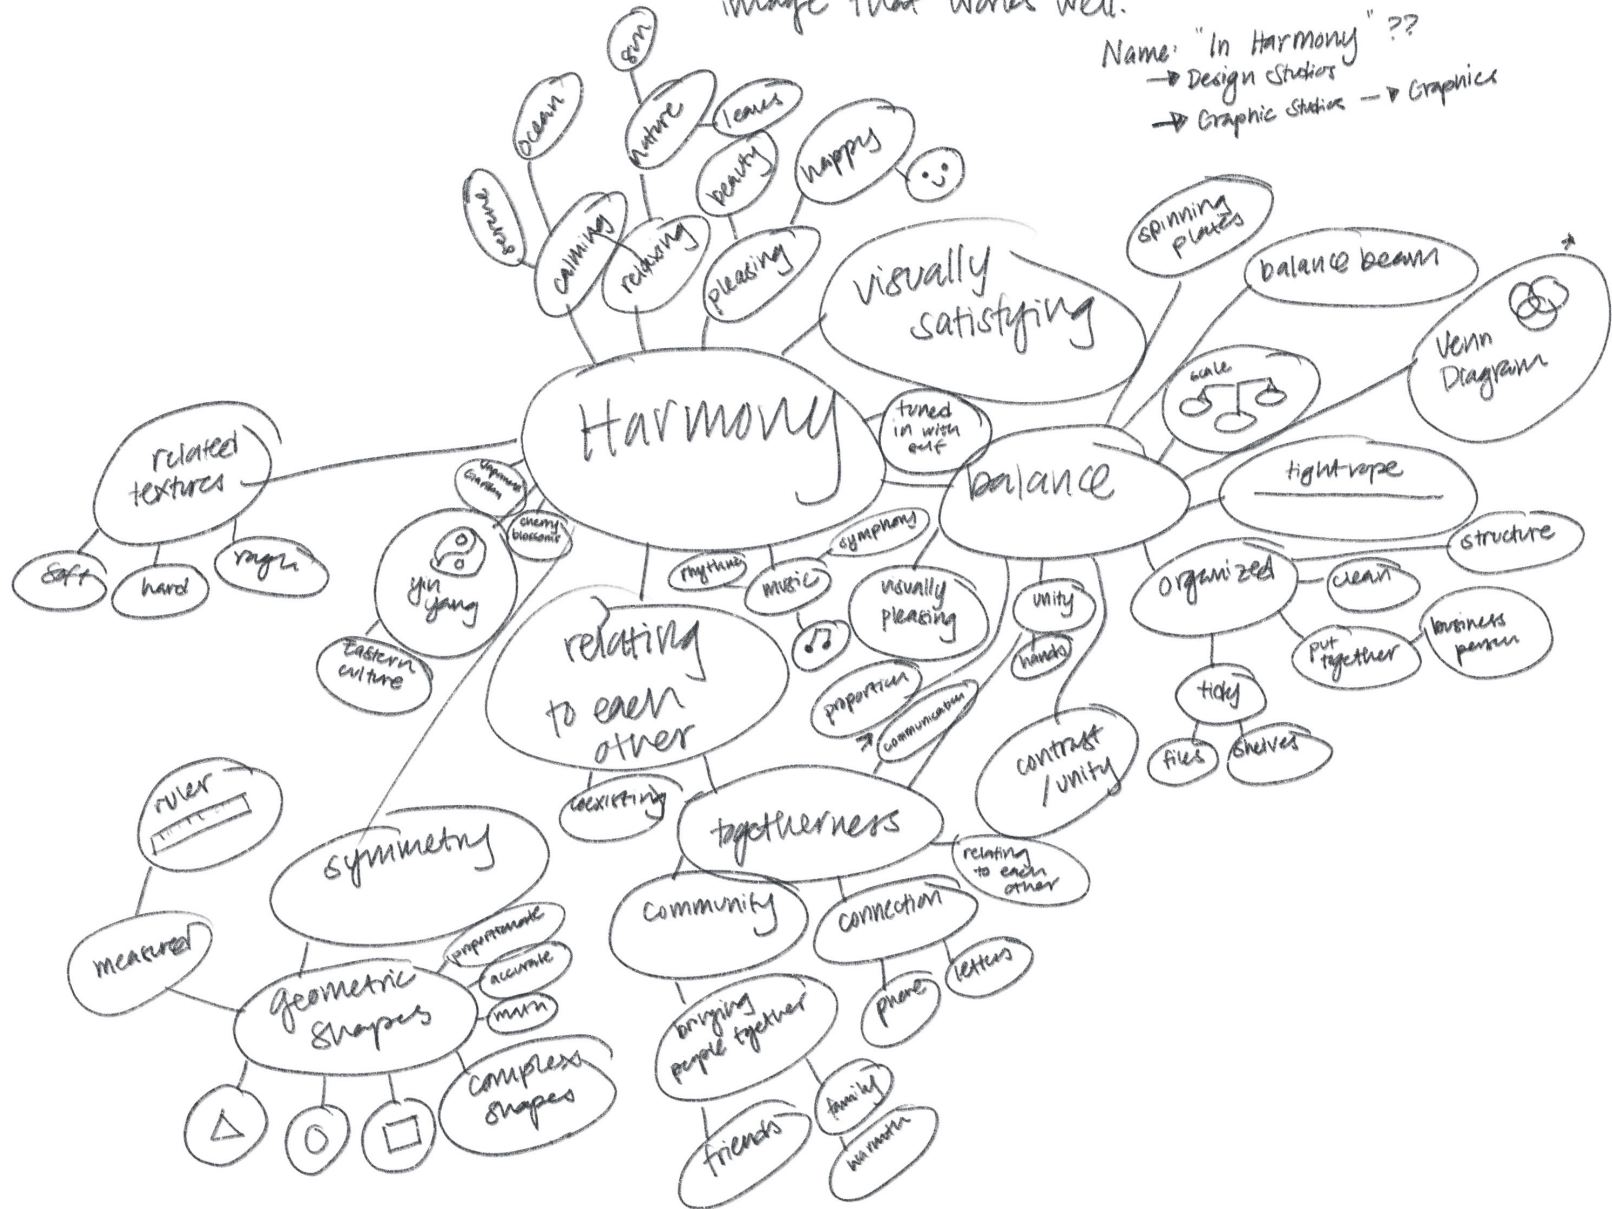 image that works well.
Name: "In Harmony" ??
→ Design Studios
→ Graphic Studios → Graphics
sun
ocean
nature
leaves
serene
beauty
happy
calming
relaxing
pleasing
visually
satisfying
spinning
plates
balance beam
Venn
Diagram
scale
Harmony
tuned
in with
self
balance
tightrope
related
textures
soft
hard
rough
garden
cherry
blossoms
yin
yang
Eastern
culture
rhythm
music
symphony
visually
pleasing
unity
hands
organized
structure
clean
put
together
business
person
tidy
files
shelves
relating
to each
other
proportion
communication
contrast
/unity
coexisting
togetherness
relating
to each
other
ruler
symmetry
measured
geometric
shapes
proportionate
accurate
math
complex
shapes
community
connection
phone
letters
bringing
people together
friends
family
warmth